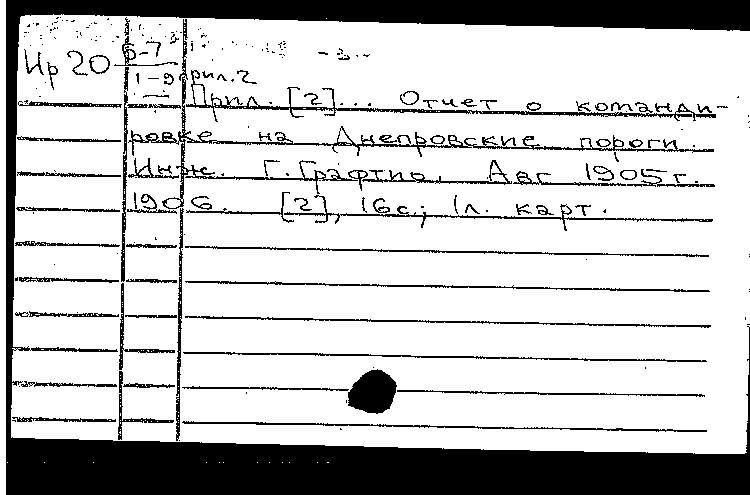 - 3 -
Ир 20 6-7
1-9 прил. 2
Прил. [2]... Отчет о команди-
ровке на Днепровские пороги.
Инж. Г. Графтио. Авг 1905 г.
1906. [2], 16с.; 1л. карт.